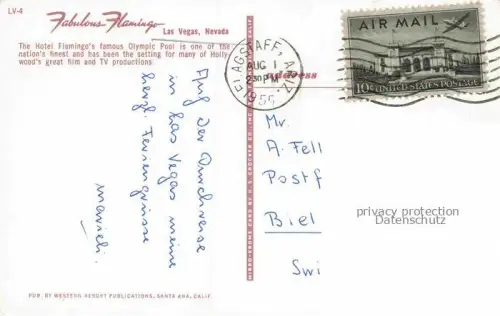 LV-4
Fabulous Flamingo
Las Vegas, Nevada
The Hotel Flamingo's famous Olympic Pool is one of the
nation's finest and has been the setting for many of Holly-
wood's great film and TV productions.
Auf der Durchreise
in Las Vegas meine
herzl. Feriengrüsse
PUB. BY WESTERN RESORT PUBLICATIONS, SANTA ANA, CALIF.
MIRRO-KROME CARD BY H. S. CROCKER CO., INC.
FLAGSTAFF, ARIZ.
AUG 1
230 PM
1955
address
AIR MAIL
10¢ UNITED STATES POSTAGE
Mr.
A. Fell
Postf
Biel
Swi
privacy protection
Datenschutz